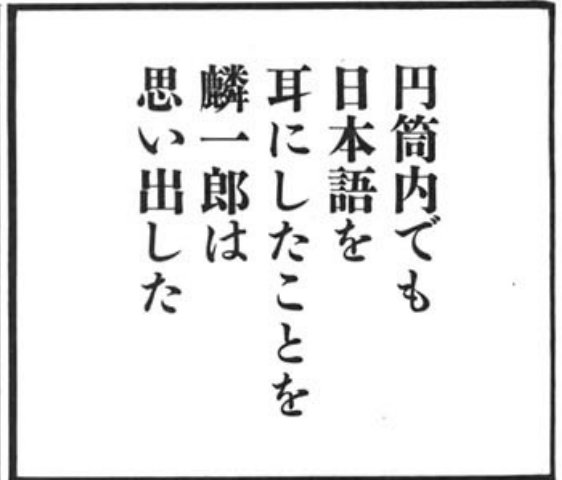 円筒内でも
日本語を
耳にしたことを
麟一郎は
思い出した